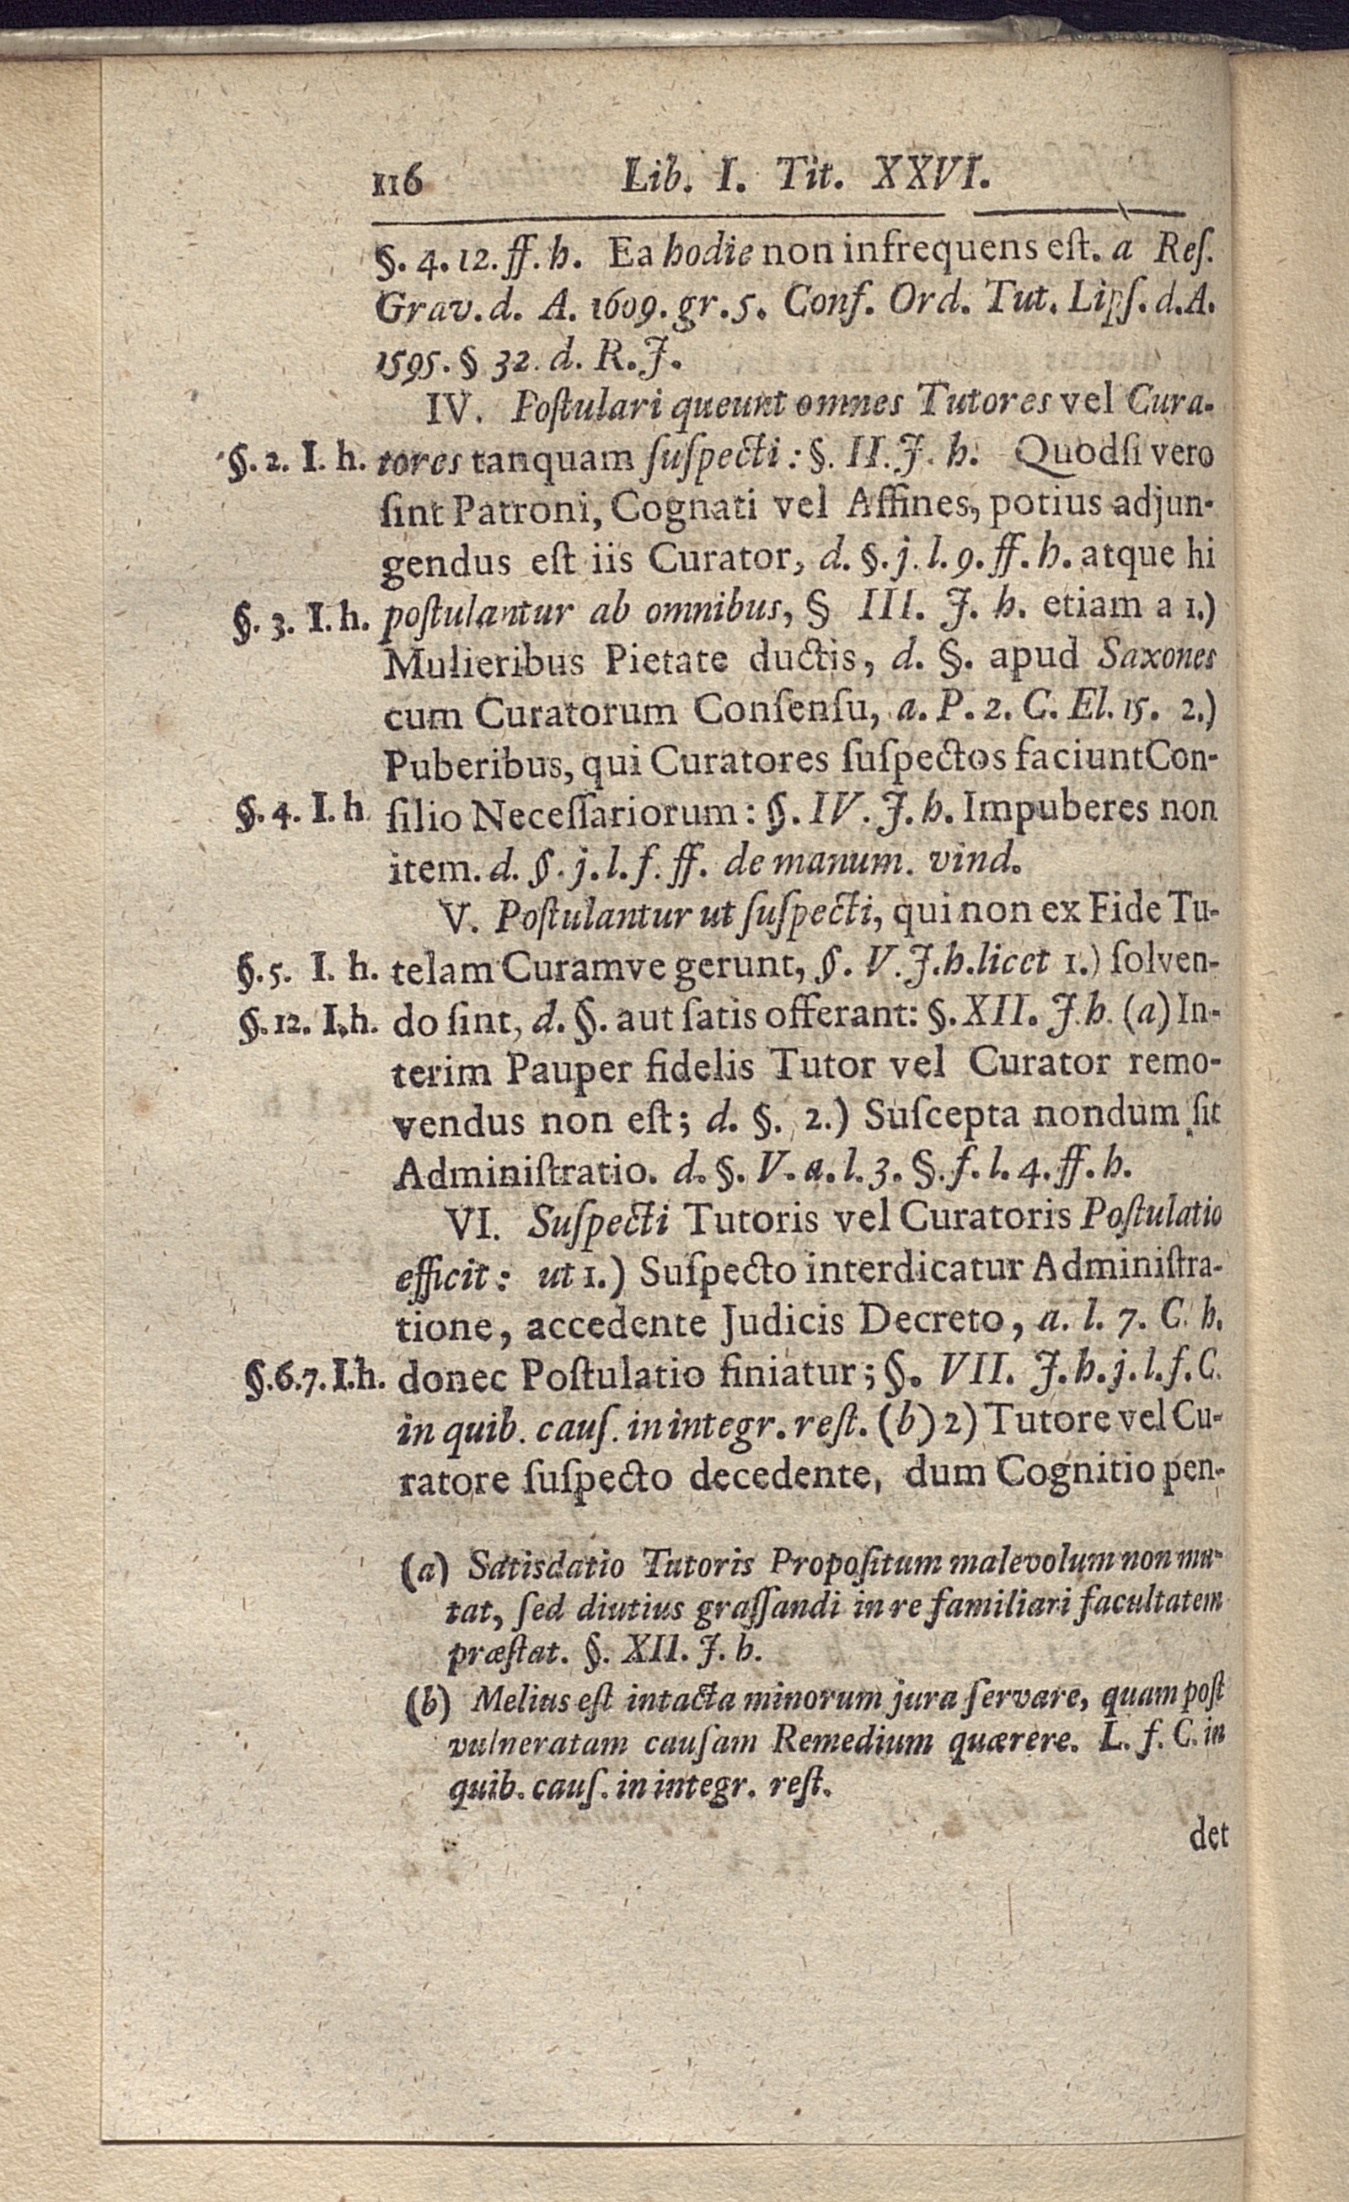 116 Lib. I. Tit. XXVI.
§. 4. 12. ff. h. Ea hodie non infrequens eſt. a Reſ.
Grav. d. A. 1609. gr. 5. Conf. Ord. Tut. Lipſ. d. A.
1595. § 32. d. R. J.
IV. Poſtulari queunt omnes Tutores vel Cura-
§. 2. I. h. tores tanquam ſuſpecti: §. II. J. h. Quodſi vero
ſint Patroni, Cognati vel Affines, potius adjun-
gendus eſt iis Curator, d. §. j. l. 9. ff. h. atque hi
§. 3. I. h. poſtulantur ab omnibus, § III. J. h. etiam a 1.)
Mulieribus Pietate ductis, d. §. apud Saxones
cum Curatorum Conſenſu, a. P. 2. C. El. 15. 2.)
Puberibus, qui Curatores ſuſpectos faciunt Con-
§. 4. I. h. ſilio Neceſſariorum: §. IV. J. h. Impuberes non
item. d. §. j. l. f. ff. de manum. vind.
V. Poſtulantur ut ſuſpecti, qui non ex Fide Tu-
§. 5. I. h. telam Curamve gerunt, §. V. J. h. licet 1.) ſolven-
§. 12. I. h. do ſint, d. §. aut ſatis offerant: §. XII. J. h. (a) In-
terim Pauper fidelis Tutor vel Curator remo-
vendus non eſt; d. §. 2.) Suſcepta nondum ſit
Adminiſtratio. d. §. V. a. l. 3. §. f. l. 4. ff. h.
VI. Suſpecti Tutoris vel Curatoris Poſtulatio
efficit: ut 1.) Suſpecto interdicatur Adminiſtra-
tione, accedente Judicis Decreto, a. l. 7. C. h.
§. 6. 7. I. h. donec Poſtulatio finiatur; §. VII. J. h. j. l. f. C.
in quib. cauſ. in integr. reſt. (b) 2) Tutore vel Cu-
ratore ſuſpecto decedente, dum Cognitio pen-
(a) Satisdatio Tutoris Propoſitum malevolum non mu-
tat, ſed diutius graſſandi in re familiari facultatem
præſtat. §. XII. J. h.
(b) Melius eſt intacta minorum jura ſervare, quam poſt
vulneratam cauſam Remedium quærere. L. f. C. in
quib. cauſ. in integr. reſt.
det